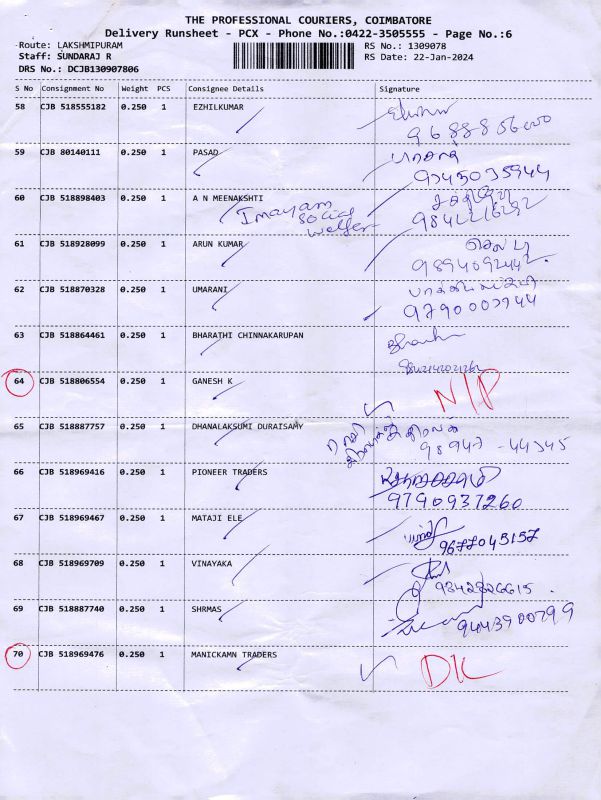 THE PROFESSIONAL COURIERS, COIMBATORE
Delivery Runsheet - PCX - Phone No.:0422-3505555 - Page No.:6
Route: LAKSHMIPURAM RS No.: 1309078
Staff: SUNDARAJ R RS Date: 22-Jan-2024
DRS No.: DCJB130907806
S No Consignment No Weight PCS Consignee Details Signature
58 CJB 518555182 0.250 1 EZHILKUMAR
59 CJB 80140111 0.250 1 PASAD
9345035944
60 CJB 518898403 0.250 1 A N MEENAKSHTI
Imayam
social
welfer
61 CJB 518928099 0.250 1 ARUN KUMAR
9894092442
62 CJB 518870328 0.250 1 UMARANI
9790003944
63 CJB 518864461 0.250 1 BHARATHI CHINNAKARUPAN
64 CJB 518806554 0.250 1 GANESH K N/P
65 CJB 518887757 0.250 1 DHANALAKSUMI DURAISAMY
98947-44345
66 CJB 518969416 0.250 1 PIONEER TRADERS
9790937260
67 CJB 518969467 0.250 1 MATAJI ELE
9677045157
68 CJB 518969709 0.250 1 VINAYAKA
9342826615
69 CJB 518887740 0.250 1 SHRMAS
9443900799
70 CJB 518969476 0.250 1 MANICKAMN TRADERS DK